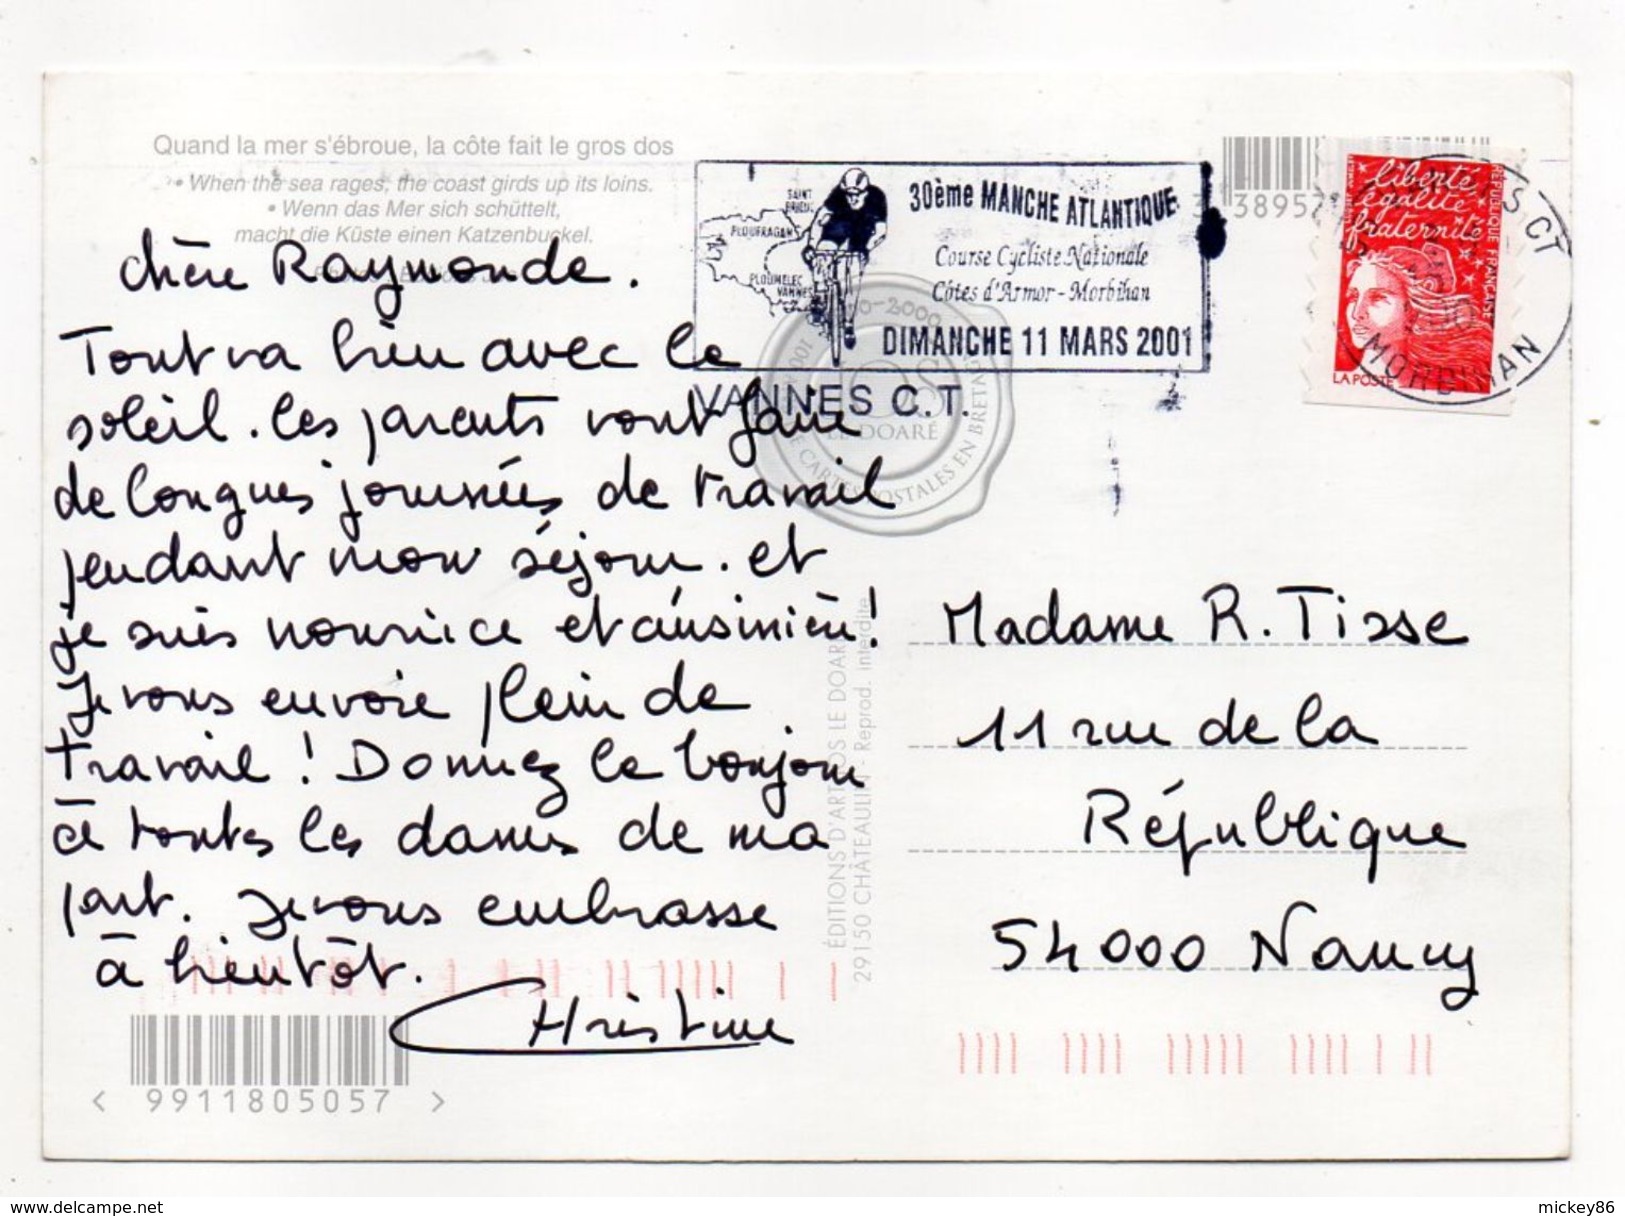 Quand la mer s'ébroue, la côte fait le gros dos
• When the sea rages, the coast girds up its loins.
• Wenn das Mer sich schüttelt,
macht die Küste einen Katzenbuckel.
chère Raymonde.
Tout va bien avec le
soleil. les parents vont faire
de longues journées de travail
pendant mon séjour. et
je suis nourrice et cuisinière!
Je vous envoie plein de
travail ! Donnez le bonjour
à toutes les dames de ma
part. Je vous embrasse
à bientôt.
Christine
< 9911805057 >
SAINT BRIEUC
PLOUFRAGAN
PLOUMELEC
VANNES
30ème MANCHE ATLANTIQUE
Course Cycliste Nationale
Côtes d'Armor - Morbihan
DIMANCHE 11 MARS 2001
VANNES C.T.
-2000
LE DOARÉ
CARTES POSTALES EN BRETAGNE
ÉDITIONS D'ART JOS LE DOARÉ
29150 CHÂTEAULIN - Reprod. interdite
38957
liberté
égalité
fraternité
RÉPUBLIQUE FRANÇAISE
LA POSTE
S CT
MORBIHAN
Madame R. Tisse
11 rue de la
République
54000 Nancy
delcampe.net
mickey86